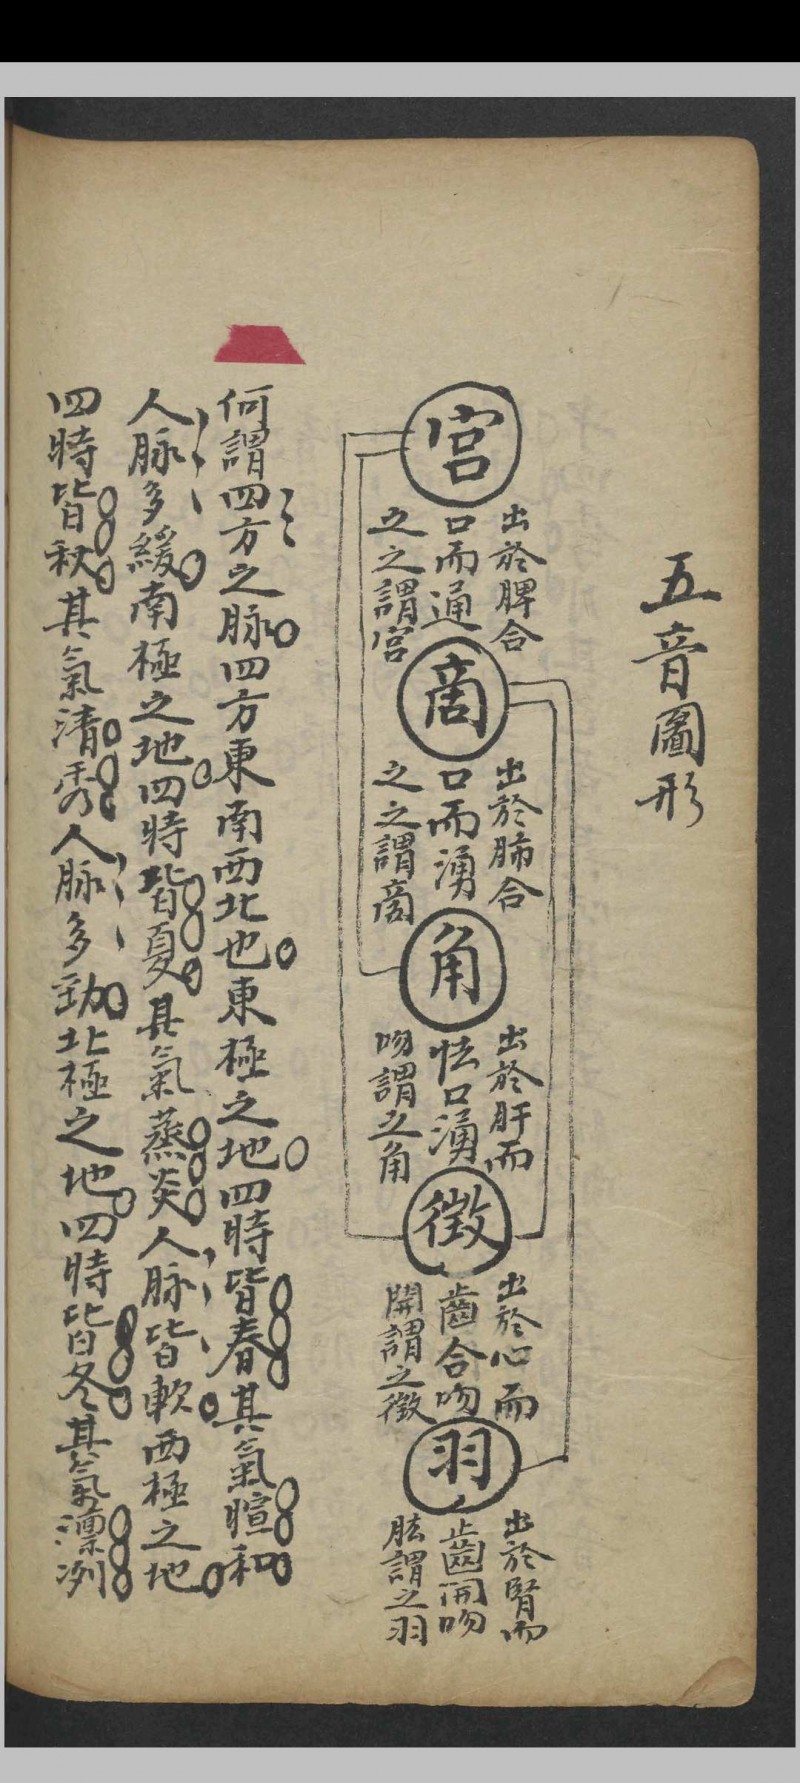 五音圖形
宮
出於脾合
口而通
之之謂宮
商
出於肺合
口而湧
之之謂商
角
出於肝而
怯口湧
吻謂之角
徵
出於心而
齒合吻
開謂之徵
羽
出於腎而
齒開吻
肱謂之羽
何謂四方之脉四方東南西北也東極之地四時皆春其氣暄和
人脉多緩南極之地四時皆夏其氣蒸炎人脉皆軟西極之地
四時皆秋其氣清秀人脉多勁北極之地四時皆冬其氣凛冽